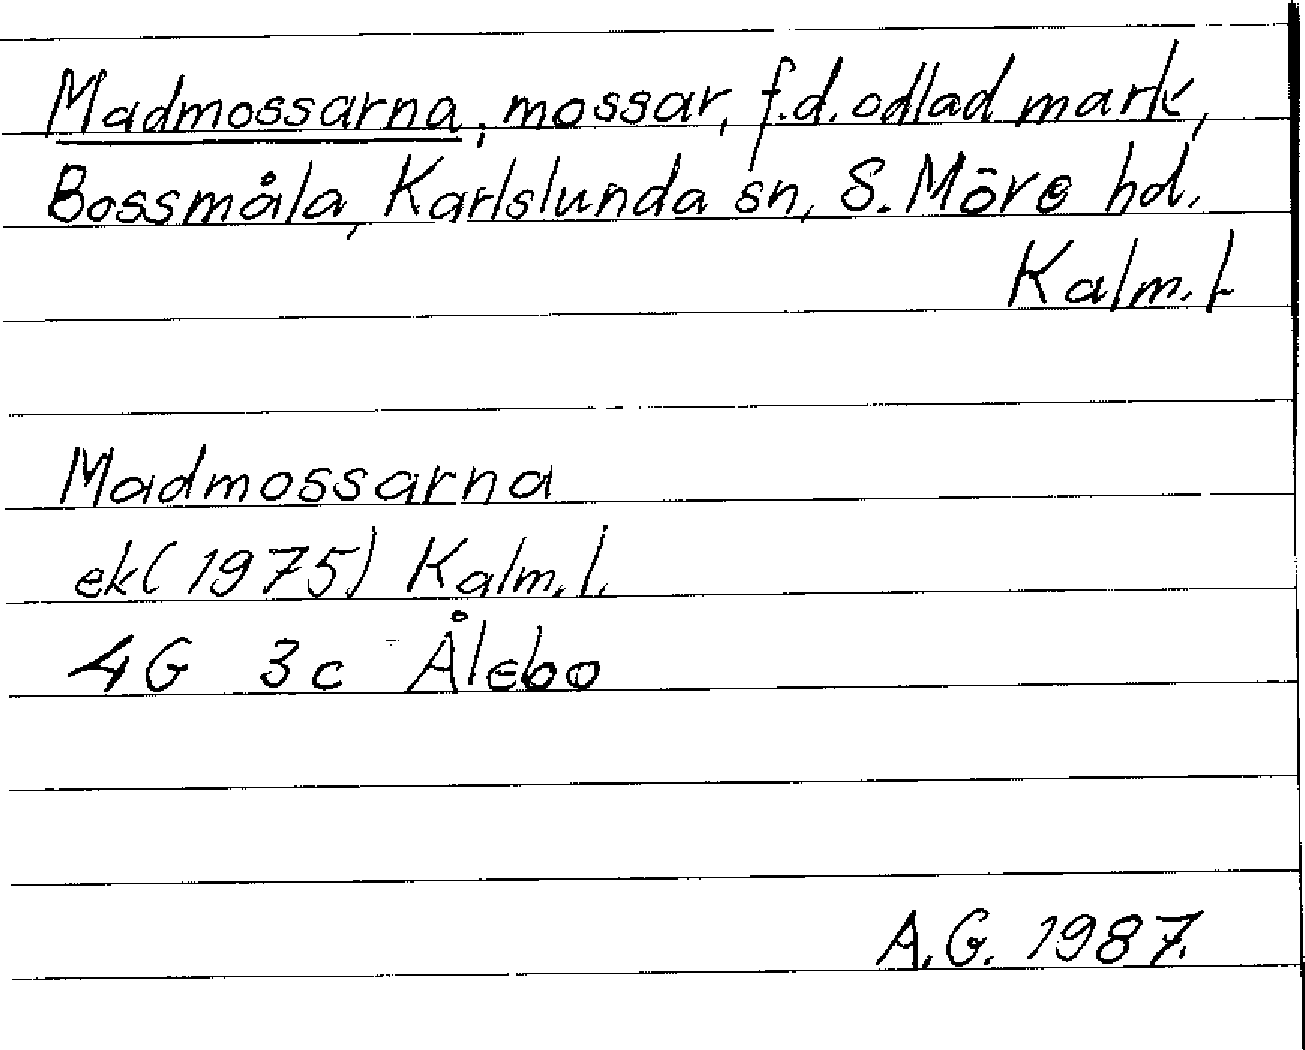 Madmossarna, mossar, f.d. odlad mark,
Bossmåla, Karlslunda sn, S. Möre hd.
Kalm. l
Madmossarna
ek (1975) Kalm. l.
4G 3c Ålebo
A.G. 1987.